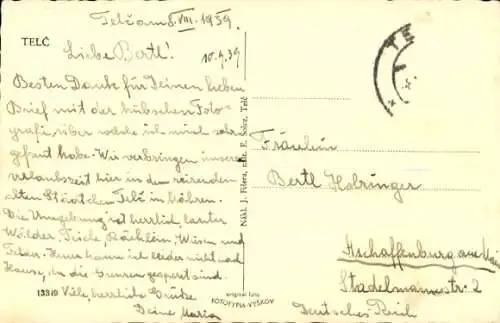 Telč am 8. VIII. 1939.
TELČ
Liebe Bertl!
10.9.39
Besten Dank für Deinen lieben
Brief mit der hübschen Foto-
grafi, über welche ich mich sehr
gefreut habe. Wir verbringen unsere
Urlaubszeit hier in dem reizenden
alten Städtchen Telč in Mähren.
Die Umgebung ist herrlich, lauter
Wälder, Teiche, Bächlein, Wiesen und
Felder. Heuer kann ich leider nicht nach
Hause, da die Grenzen gesperrt sind.
Viele herzliche Grüße
Deine Maria
13319
original foto
FOTOTYPIA-VYŠKOV
Nákl. J. Fišera, E. Šolce, Telč
TE
Fräulein
Bertl Holzinger
Aschaffenburg am Main
Stadelmannstr. 2
Deutsches Reich